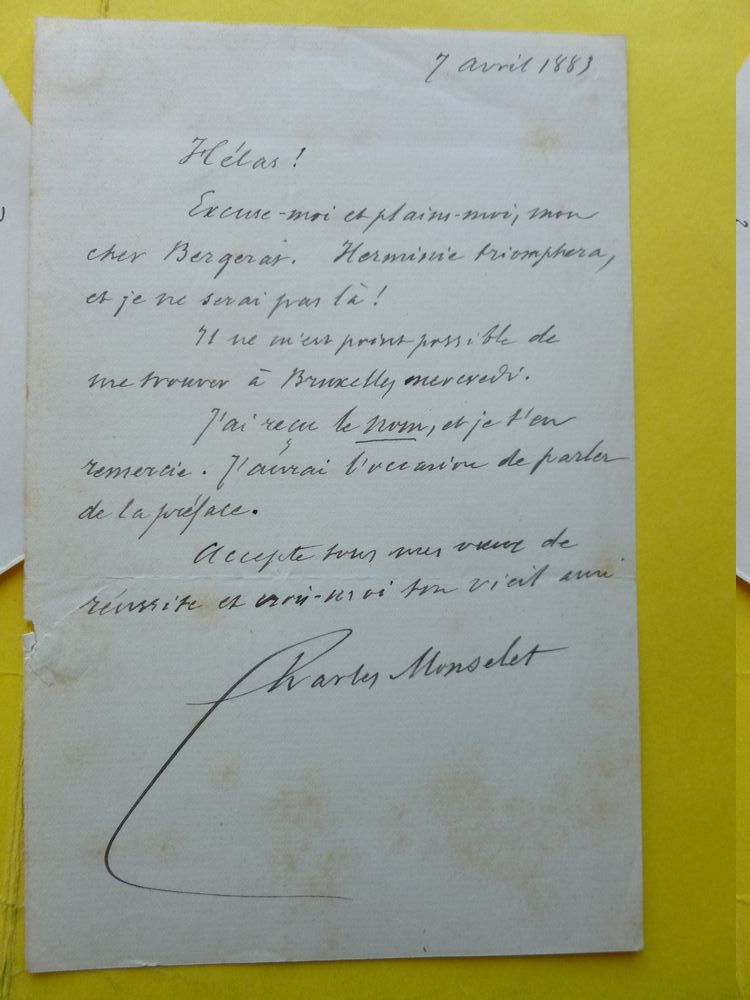 7 avril 1883
Hélas !
Excuse-moi et plains-moi, mon
cher Bergerat. Herminie triomphera,
et je ne serai pas là !
Il ne m'est point possible de
me trouver à Bruxelles mercredi.
J'ai reçu le nom, et je t'en
remercie. J'aurai l'occasion de parler
de la préface.
Accepte tous mes vœux de
réussite et crois-moi ton vieil ami
Charles Monselet